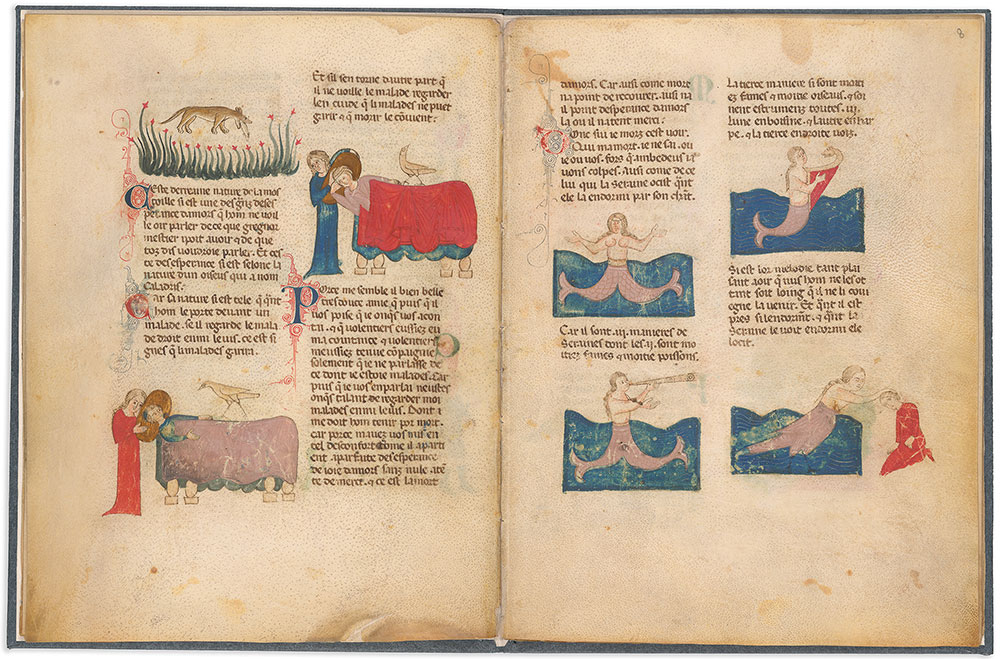 Ceste derreaine nature de la mos
toille si est une des gnz deses
perance damors qhom ne voil
le oir parler de ce que gregnor
mestier ipoit avoir ⁊ de que
toz dis voudroie parler. Et ces
te desesperance si est selonc la
nature dun oiseus qi a nom
caladris.
Car sa nature si est tele q̃ qñt
hom le porte devant un
malade. se il regarde le mala
de droit enmi le vis. ce est si
gnes q̃ li malades garira.
Et sil sen torne dautre part q̃
il ne voille le malade regarder
len cuide q̃ li malades ne puet
garir ⁊ q̃ morir le cõvent.
Porce me semble il bien belle
tres douce amie q̃ puis q̃ il
vos poise q̃ ie onqs vos acon
tai. ⁊ q̃ volentiers cussiez en
ma cointance ⁊ volentiers
meussiez tenue cõpaignie
solement q̃ ie ne parlasse de
ce dont ie estoie malades. Car
puis q̃ ie vos en parlai neustes
onqs talant de regarder moi
malades enmi le vis. Dont i
me doit hom tenir por mort.
car porce mavez vos mis en
tel desconfort. Come il aparti
ent a parfaite desesperance
de ioie damors sanz nule atē
te de merci. ⁊ ce est la mort
8
damors. Car ausi come mort
na point de recovrer. ausi na
il point desperance damors
la ou il natent merci.
Donc sui ie mors cest voir.
Qui ma mort. ie ne sai. ou
ie ou vos. fors q̃ ambedeus ia
vons colpes. ausi come de ce
lui qui la Seraine ocist qñt
ele la endormi par son chãt.
Car il sont .iii. manieres de
Seraines dont les .ii. sont mo
itiez fames ⁊ moitie poissons.
La tierce maniere si sont moiti
ez fames ⁊ moitie oiseaus. ⁊ so
nent estrumenz toutes .iii.
lune en boisine. ⁊ lautre en har
pe. ⁊ la tierce en droite voiz.
Si est lor melodie tant plai
sant a oir q̃ nus hom ne les ot
tant soit loing q̃ il ne li covi
egne la venir. Et qñt il est
pres si lendormẽt. ⁊ qñt la
Seraine le voit endormi ele
locit.